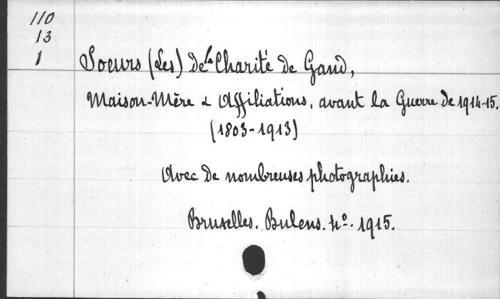 110
13
1
Soeurs (Les) de la Charité de Gand,
Maison-Mère & Affiliations, avant la Guerre de 1914-15.
(1803-1913)
Avec de nombreuses photographies.
Bruxelles. Bulens. 4º. 1915.